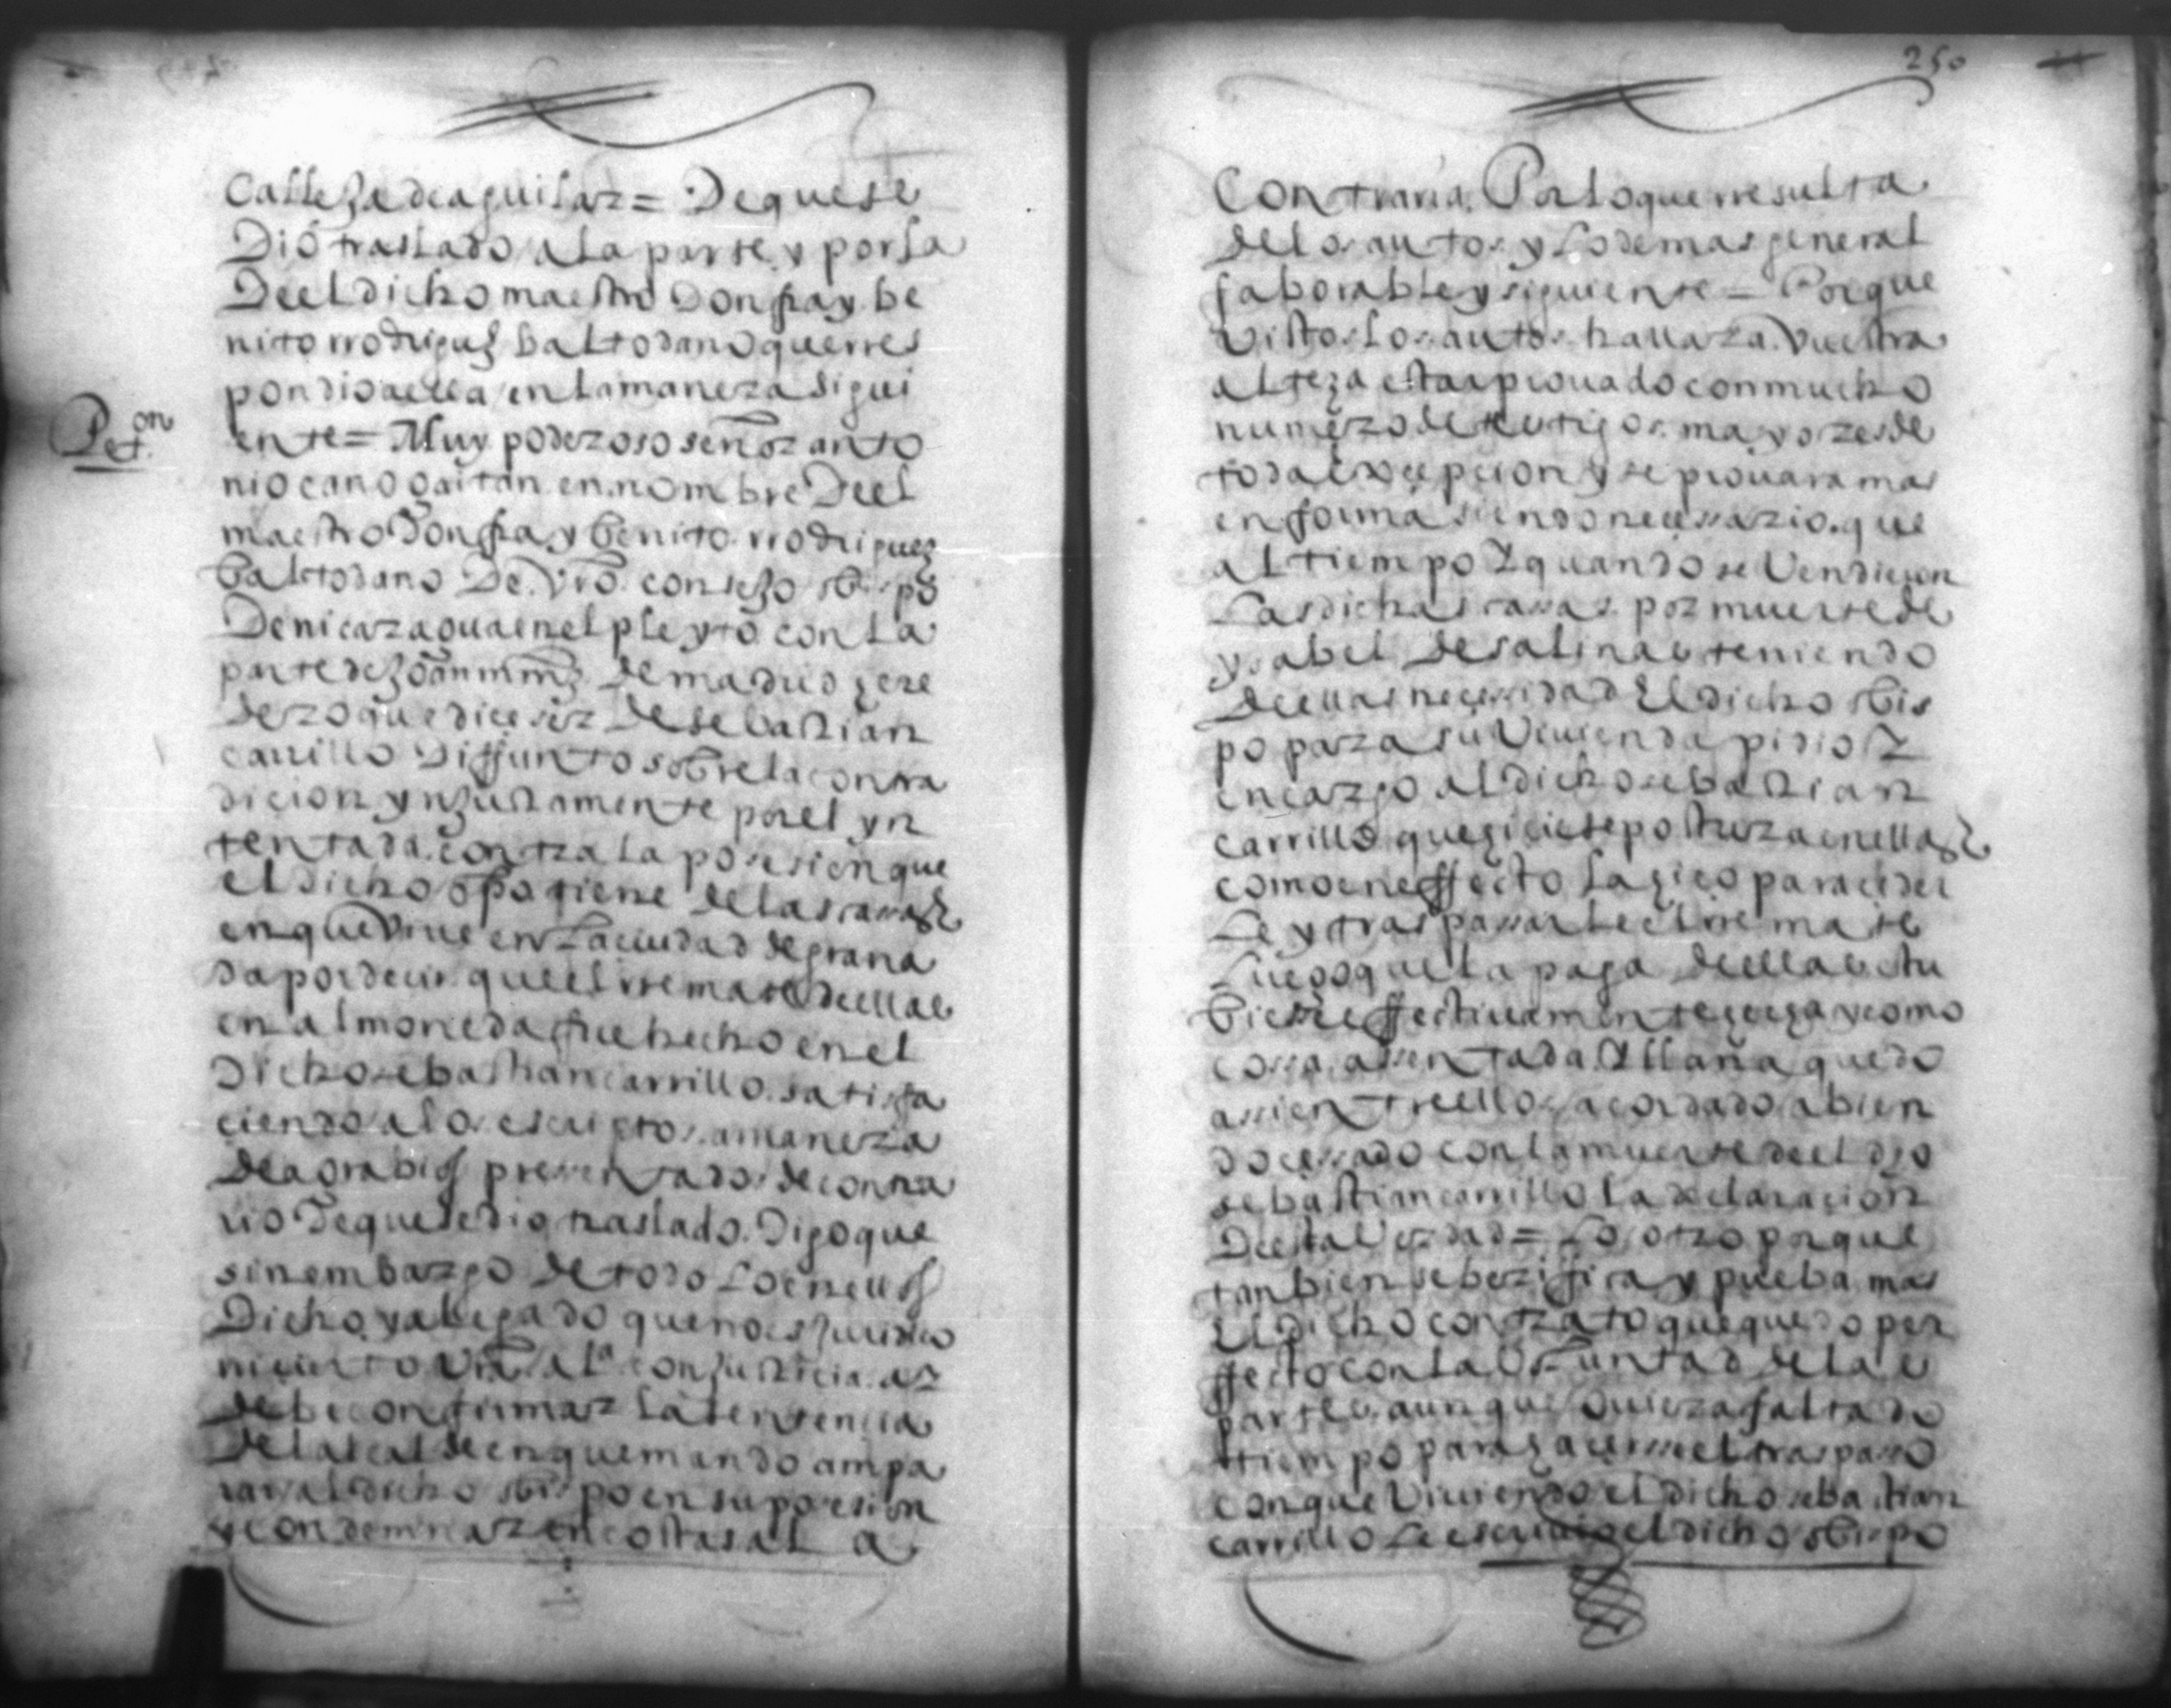 Calleja de aguilar = De que se
Dió traslado a la parte y por la
De el dicho maestro Don fray be
nito rrodriguez baltodano que rres
pondio a ella en la manera sigui
Pet.on
ente = Muy poderoso señor anto
nio cano gaitan en nombre De el
maestro Don fray benito rrodriguez
baltodano De Vro. consejo obispo
De nicaragua en el pleyto con la
parte de Joan mrnz de madrid here
dero que dice ser de sebastian
carrillo Diffunto sobre la contra
dicion ynJustamente por el yn
tentada contra la posesion que
el dicho obpo tiene de las casas
en que Viue en La ciudad de grana
da por decir que el rremate de ellas
en almoneda fue hecho en el
Dicho sebastian carrillo satisfa
ciendo a los escriptos a manera
de agrabios presentados de contra
rio De que se dio traslado. Digo que
sin embargo de todo Lo en ellos
Dicho y alegado que no es Juridico
ni cierto Vra. al.a con Justicia a
debe confirmar la sentencia
de la real de en que mando ampa
rar al dicho obispo en su posesion
y condeminar en costas a la
250
Contraria. Por lo que rresulta
de los autos y Lo demas general
faborable y siguiente = Porque
Vistos los autos hallara Vuestra
alteza estar prouado con mucho
numero de testigos mayores de
toda excepcion y se prouara mas
en forma siendo necessario. que
al tiempo Y quando se Vendieron
Las dichas casas por muerte de
ysabel de salinas teniendo
de ellas necessidad El dicho obis
po para su Viuienda pidio Y
encargo al dicho sebastian
carrillo que hiciese postura en ellas
como en effecto la hiço para ceder
Le y traspassarle el rremate
Luego que la paga de ellas estu
biese effectiuamente hecha y como
cossa assentada Y llana quedo
assi entre ellos acordado abien
do cessado con la muerte de el dho
sebastian carrillo la declaracion
De esta Verdad = Lo otro porque
tanbien se berifica y prueba mas
El dicho contrato que quedo per
ffecto con la Voluntad de las
partes aunque Vuiera faltado
tiempo para hacersse el traspasso
con que Viuiendo el dicho sebastian
carrillo Le escriuio el dicho obispo